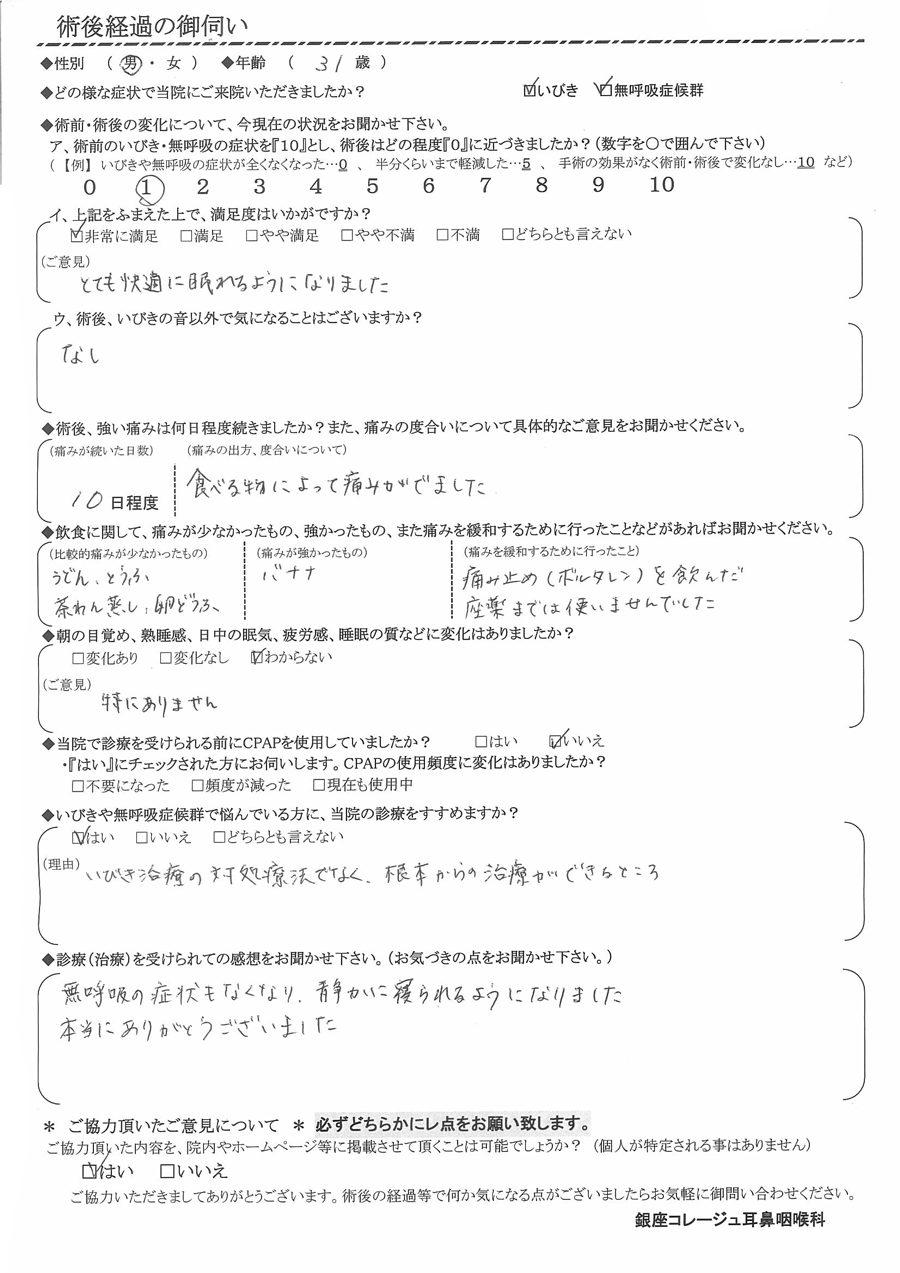 術後経過の御伺い
◆性別 （ 男 ・ 女 ） ◆年齢 （ 31 歳 ）
◆どの様な症状で当院にご来院いただきましたか？ ☑いびき ☑無呼吸症候群
◆術前・術後の変化について、今現在の状況をお聞かせ下さい。
ア、術前のいびき・無呼吸の症状を『10』とし、術後はどの程度『0』に近づきましたか？（数字を○で囲んで下さい）
（【例】 いびきや無呼吸の症状が全くなくなった…0 、 半分くらいまで軽減した…5 、 手術の効果がなく術前・術後で変化なし…10 など）
0 1 2 3 4 5 6 7 8 9 10
イ、上記をふまえた上で、満足度はいかがですか？
☑非常に満足 □満足 □やや満足 □やや不満 □不満 □どちらとも言えない
（ご意見）
とても快適に眠れるようになりました
ウ、術後、いびきの音以外で気になることはございますか？
なし
◆術後、強い痛みは何日程度続きましたか？また、痛みの度合いについて具体的なご意見をお聞かせください。
（痛みが続いた日数） （痛みの出方、度合いについて）
10 日程度 食べる物によって痛みがでました
◆飲食に関して、痛みが少なかったもの、強かったもの、また痛みを緩和するために行ったことなどがあればお聞かせください。
（比較的痛みが少なかったもの） （痛みが強かったもの） （痛みを緩和するために行ったこと）
うどん、とうふ バナナ 痛み止め（ボルタレン）を飲んだ
茶わん蒸し、卵どうふ、 座薬までは使いませんでした
◆朝の目覚め、熟睡感、日中の眠気、疲労感、睡眠の質などに変化はありましたか？
□変化あり □変化なし ☑わからない
（ご意見）
特にありません
◆当院で診療を受けられる前にCPAPを使用していましたか？ □はい ☑いいえ
・『はい』にチェックされた方にお伺いします。CPAPの使用頻度に変化はありましたか？
□不要になった □頻度が減った □現在も使用中
◆いびきや無呼吸症候群で悩んでいる方に、当院の診療をすすめますか？
☑はい □いいえ □どちらとも言えない
（理由） いびき治療の対処療法でなく、根本からの治療ができるところ
◆診療（治療）を受けられての感想をお聞かせ下さい。（お気づきの点をお聞かせ下さい。）
無呼吸の症状もなくなり、静かに寝られるようになりました
本当にありがとうございました
＊ ご協力頂いたご意見について ＊ 必ずどちらかにレ点をお願い致します。
ご協力頂いた内容を、院内やホームページ等に掲載させて頂くことは可能でしょうか？ （個人が特定される事はありません）
☑はい □いいえ
ご協力いただきましてありがとうございます。術後の経過等で何か気になる点がございましたらお気軽に御問い合わせください。
銀座コレージュ耳鼻咽喉科